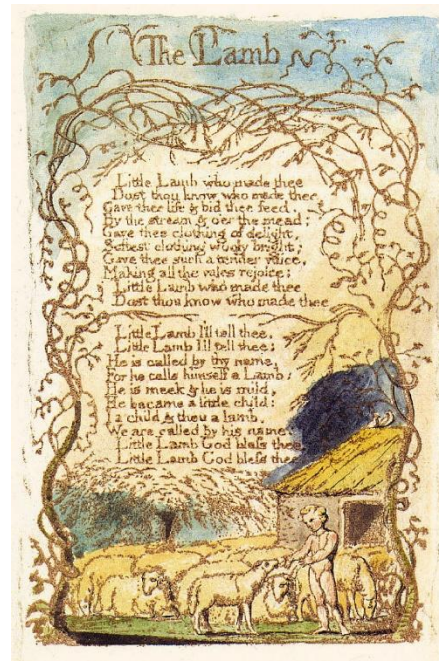 The Lamb
Little Lamb who made thee
Dost thou know who made thee
Gave thee life & bid thee feed,
By the stream & o'er the mead;
Gave thee clothing of delight,
Softest clothing wooly bright;
Gave thee such a tender voice,
Making all the vales rejoice;
Little Lamb who made thee
Dost thou know who made thee
Little Lamb I'll tell thee,
Little Lamb I'll tell thee;
He is called by thy name,
For he calls himself a Lamb:
He is meek & he is mild,
He became a little child:
I a child & thou a lamb,
We are called by his name.
Little Lamb God bless thee,
Little Lamb God bless thee.